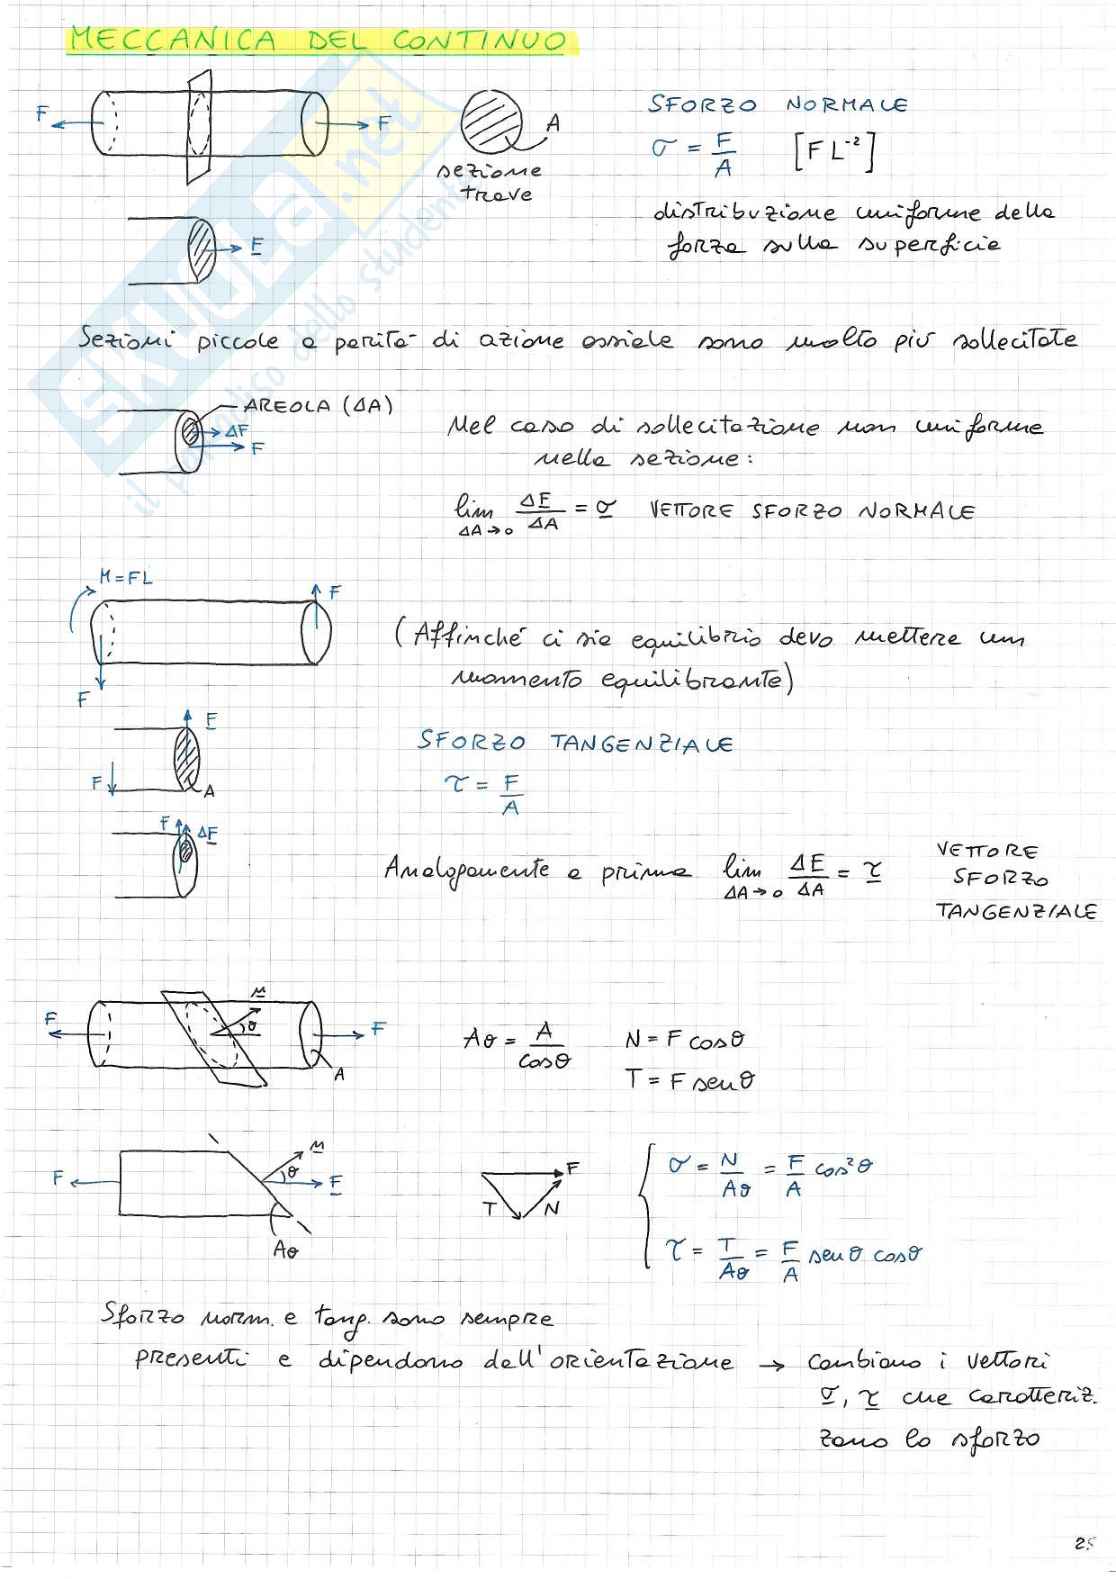 MECCANICA DEL CONTINUO
F
F
A
sezione
trave
SFORZO NORMALE
σ = F/A [F L⁻²]
F
distribuzione uniforme della
forza sulla superficie
Sezioni piccole a parità di azione assiale sono molto più sollecitate
AREOLA (ΔA)
ΔF
F
Nel caso di sollecitazione non uniforme
nella sezione:
lim ΔA→0 ΔF/ΔA = σ VETTORE SFORZO NORMALE
M = FL
F
F
(Affinché ci sia equilibrio devo mettere un
momento equilibrante)
F
F
A
SFORZO TANGENZIALE
τ = F/A
F
ΔF
Analogamente a prima lim ΔA→0 ΔF/ΔA = τ
VETTORE
SFORZO
TANGENZIALE
F
n
θ
F
A
Aθ = A/cosθ N = F cosθ
T = F senθ
F
n
θ
F
Aθ
F
T
N
σ = N/Aθ = F/A cos²θ
τ = T/Aθ = F/A senθ cosθ
Sforzo norm. e tang. sono sempre
presenti e dipendono dall'orientazione → cambiano i vettori
σ, τ che caratteriz.
zano lo sforzo
25
SKUOLA.net
il paradiso dello studente